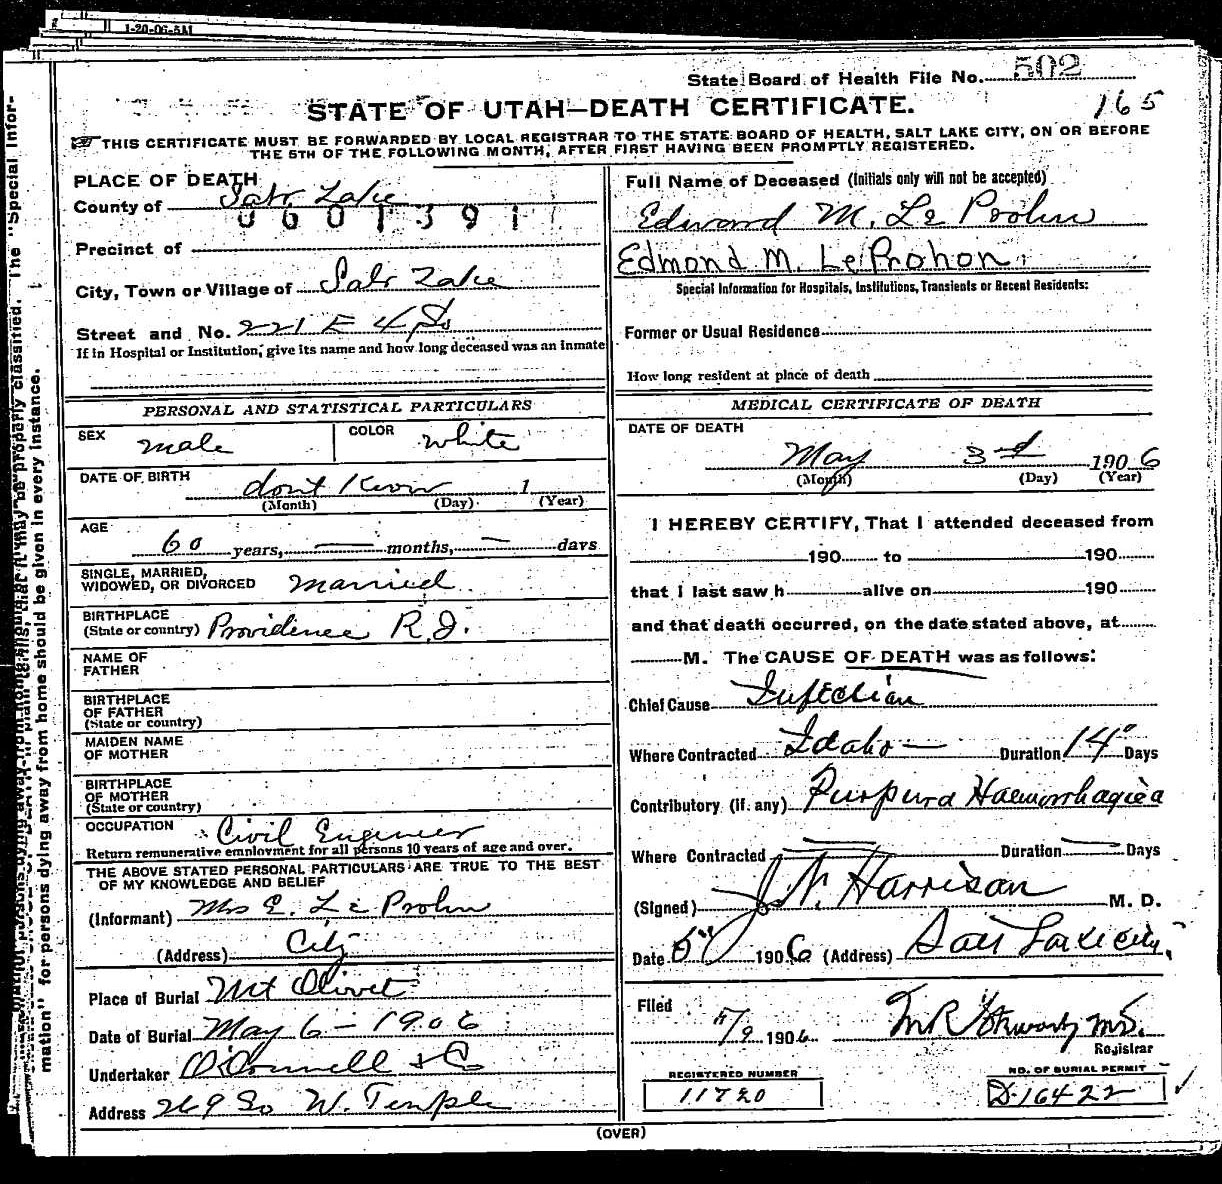 1-20-06-5M
State Board of Health File No. 502
165
STATE OF UTAH—DEATH CERTIFICATE.
THIS CERTIFICATE MUST BE FORWARDED BY LOCAL REGISTRAR TO THE STATE BOARD OF HEALTH, SALT LAKE CITY, ON OR BEFORE
THE 5TH OF THE FOLLOWING MONTH, AFTER FIRST HAVING BEEN PROMPTLY REGISTERED.
PLACE OF DEATH
County of Salt Lake
0601391
Precinct of
City, Town or Village of Salt Lake
Street and No. 221 E 4 So
If in Hospital or Institution, give its name and how long deceased was an inmate
PERSONAL AND STATISTICAL PARTICULARS
SEX male COLOR white
DATE OF BIRTH dont Know 1
(Month) (Day) (Year)
AGE
60 years, — months, — days
SINGLE, MARRIED,
WIDOWED, OR DIVORCED married
BIRTHPLACE
(State or country) Providence R.I.
NAME OF
FATHER
BIRTHPLACE
OF FATHER
(State or country)
MAIDEN NAME
OF MOTHER
BIRTHPLACE
OF MOTHER
(State or country)
OCCUPATION Civil Engineer
Return remunerative employment for all persons 10 years of age and over.
THE ABOVE STATED PERSONAL PARTICULARS ARE TRUE TO THE BEST
OF MY KNOWLEDGE AND BELIEF
(Informant) Mrs E. Le Prohn
(Address) City
Place of Burial Mt Olivet
Date of Burial May 6 - 1906
Undertaker O'Donnell & Co
Address 269 So W. Temple
Full Name of Deceased (Initials only will not be accepted)
Edward M. Le Prohn
Edmond M. LeProhon
Special Information for Hospitals, Institutions, Transients or Recent Residents:
Former or Usual Residence
How long resident at place of death
MEDICAL CERTIFICATE OF DEATH
DATE OF DEATH
May 3rd 1906
(Month) (Day) (Year)
I HEREBY CERTIFY, That I attended deceased from
190 to 190
that I last saw h alive on 190
and that death occurred, on the date stated above, at
M. The CAUSE OF DEATH was as follows:
Chief Cause Infection
Where Contracted Idaho — Duration 14 Days
Contributory (if any) Purpura Haemorrhagica
Where Contracted — Duration — Days
(Signed) J N. Harrison M. D.
Date 5" 1906 (Address) Salt Lake City.
Filed
5/9 1906
Registrar
REGISTERED NUMBER
11720
NO. OF BURIAL PERMIT
D-16422
(OVER)
mation" for persons dying away from home should be given in every instance.